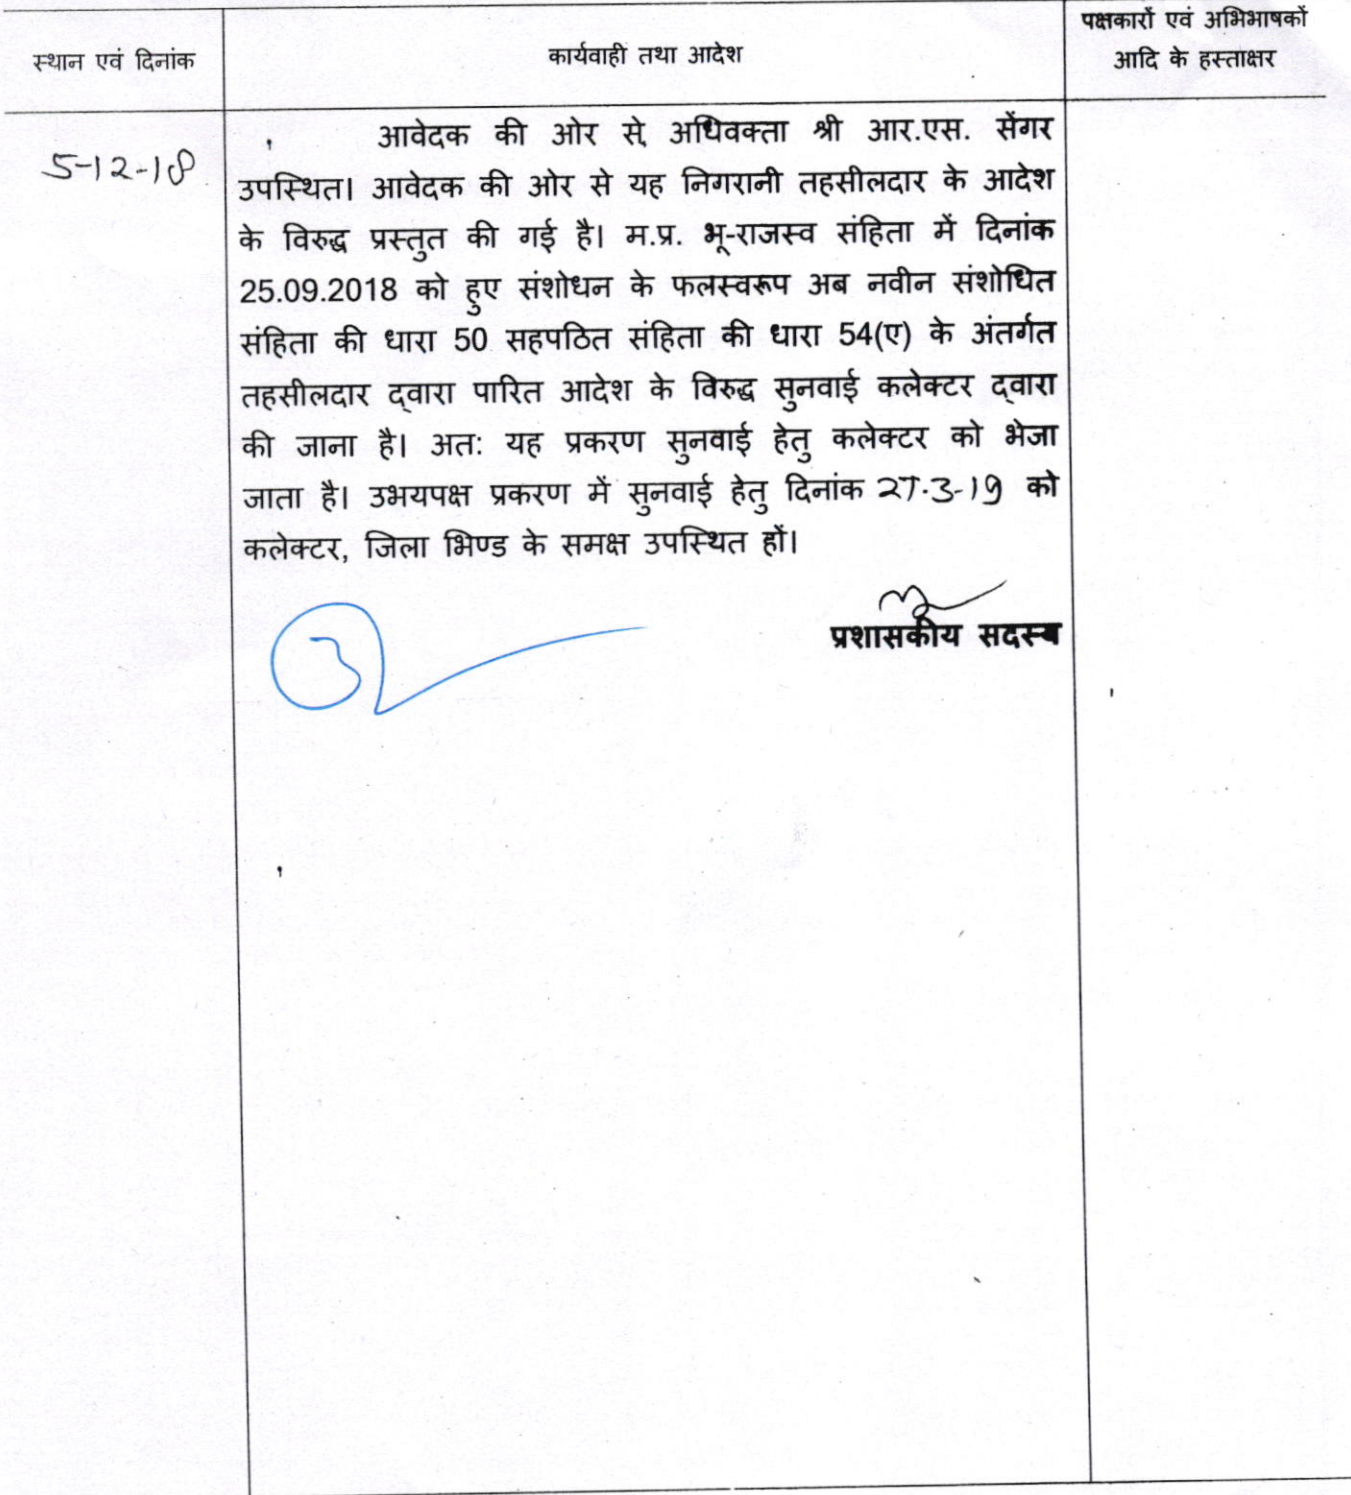 स्थान एवं दिनांक
कार्यवाही तथा आदेश
पक्षकारों एवं अभिभाषकों
आदि के हस्ताक्षर
5-12-18
आवेदक की ओर से अधिवक्ता श्री आर.एस. सेंगर
उपस्थित। आवेदक की ओर से यह निगरानी तहसीलदार के आदेश
के विरुद्ध प्रस्तुत की गई है। म.प्र. भू-राजस्व संहिता में दिनांक
25.09.2018 को हुए संशोधन के फलस्वरूप अब नवीन संशोधित
संहिता की धारा 50 सहपठित संहिता की धारा 54(ए) के अंतर्गत
तहसीलदार द्वारा पारित आदेश के विरुद्ध सुनवाई कलेक्टर द्वारा
की जाना है। अत: यह प्रकरण सुनवाई हेतु कलेक्टर को भेजा
जाता है। उभयपक्ष प्रकरण में सुनवाई हेतु दिनांक 27-3-19 को
कलेक्टर, जिला भिण्ड के समक्ष उपस्थित हों।
प्रशासकीय सदस्य